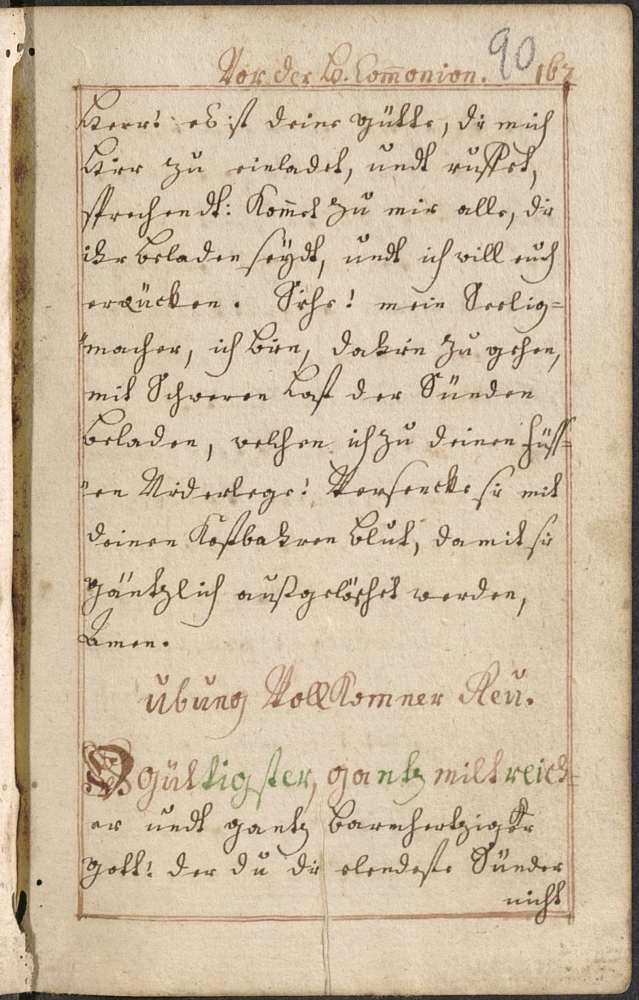 Vor der H. Com̅onion. 90 167
Herr! es ist deine gütte, die mich
hier zu einladet, undt ruffet,
sprechendt: Kom̅et zu mir alle, die
ihr beladen seydt, undt ich will euch
erquicken. Sihe! mein Seelig=
macher, ich bin, dahin zu gehen,
mit Schweren Last der Sünden
beladen, welchen ich zu deinen füss=
en Niderlege! Versencke sie mit
deinen Kostbahren blut, damit sie
gäntzlich außgelöschet werden,
Amen.
Übung VollKomner Reu.
O güttigster, gantz miltreich=
er undt gantz barmhertzigster
Gott! der du die elendeste Sünder
nicht